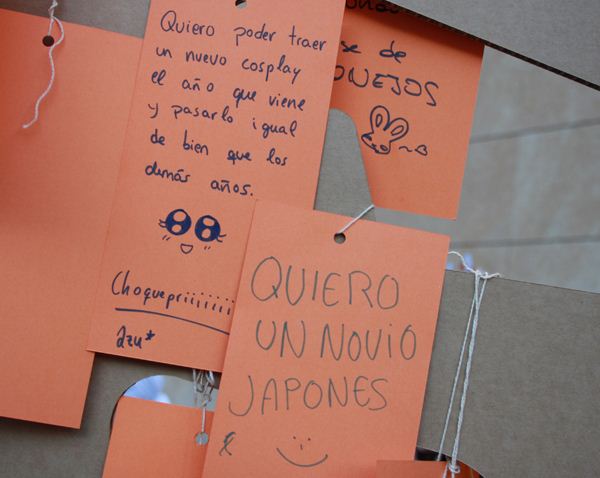 Quiero poder traer
un nuevo cosplay
el año que viene
y pasarlo igual
de bien que los
demás años.
Choquepriiiiiii
Azu*
se de
ONEJOS
QUIERO
UN NOVIO
JAPONES